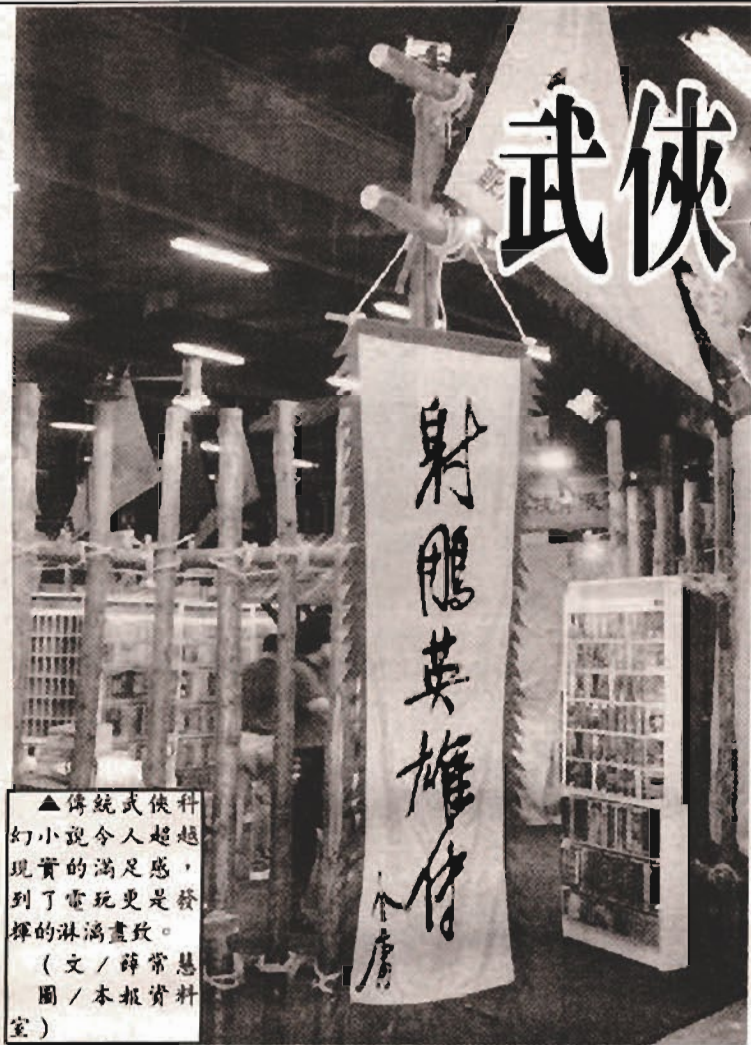 武俠
射鵰英雄傳
金庸
▲傳統武俠科
幻小說令人超越
現實的滿足感，
到了電玩更是發
揮的淋漓盡致。
（文／薛常慧
圖／本報資料
室）